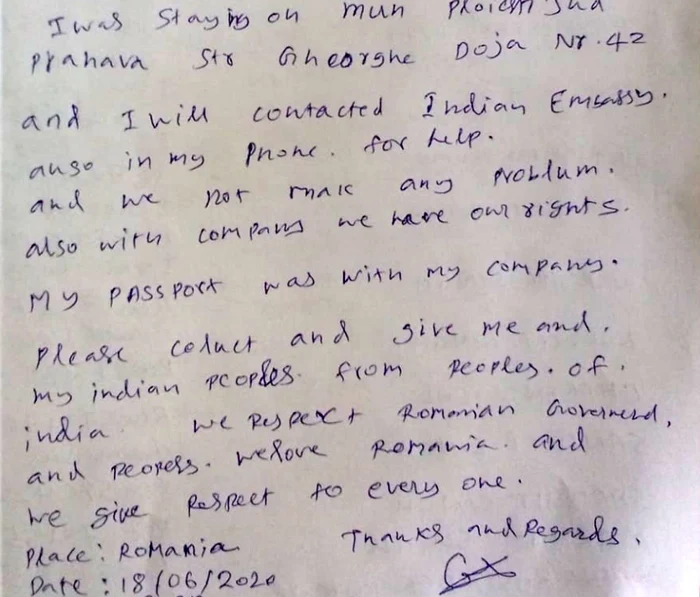 I was staying on mun Ploiesti Jud
Prahava Str Gheorghe Doja Nr. 42
and I will contacted Indian Embassy.
auso in my Phone. for help.
and we not make any problum.
also with company we have our rights.
My PASSPORT was with my company.
Please coluct and give me and.
my indian peoples. from peoples. of.
india. we respext Romanian Governend,
and peopess. welove Romania. and
we give Respect to every one.
Place: Romania Thanks and Regards.
Date: 18/06/2020